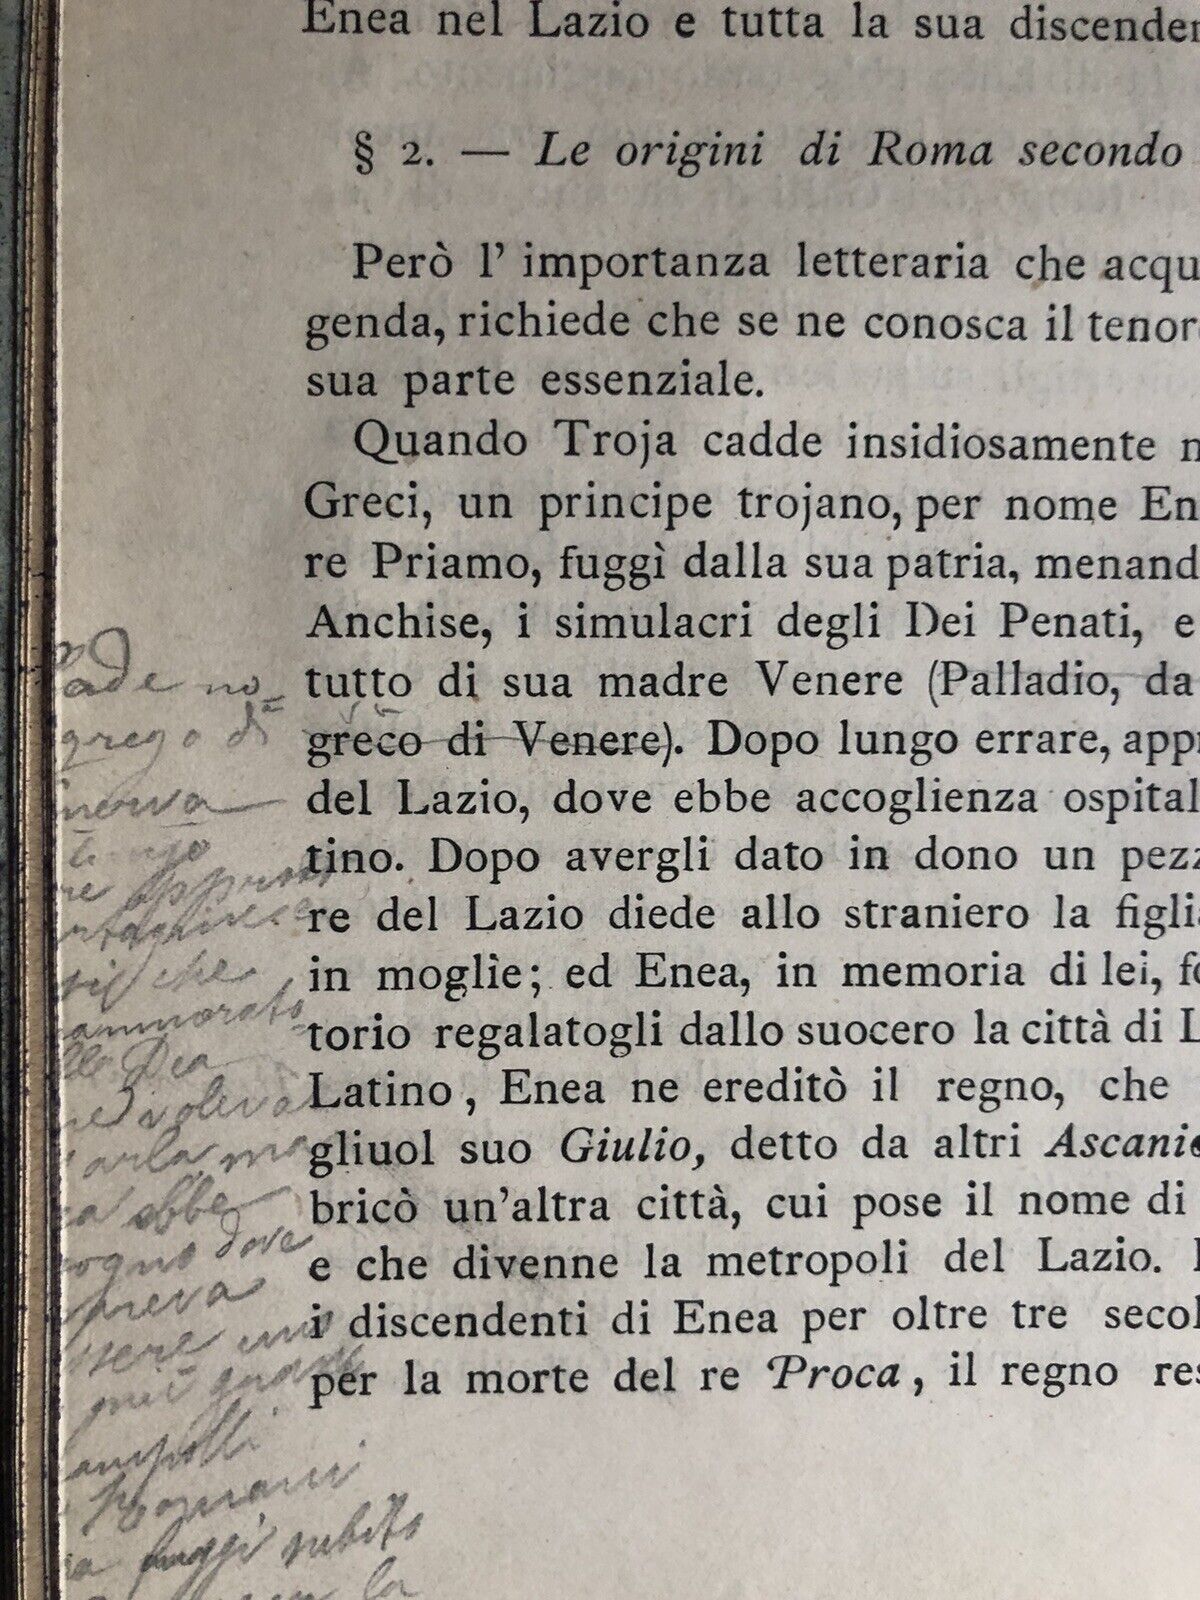 Enea nel Lazio e tutta la sua discenden
§ 2. — Le origini di Roma secondo
Però l' importanza letteraria che acqu
genda, richiede che se ne conosca il tenor
sua parte essenziale.
Quando Troja cadde insidiosamente n
Greci, un principe trojano, per nome En
re Priamo, fuggì dalla sua patria, menand
Anchise, i simulacri degli Dei Penati, e
tutto di sua madre Venere (Palladio, da
greco di Venere). Dopo lungo errare, appr
del Lazio, dove ebbe accoglienza ospital
tino. Dopo avergli dato in dono un pezz
re del Lazio diede allo straniero la figli
in moglie; ed Enea, in memoria di lei, fo
torio regalatogli dallo suocero la città di L
Latino, Enea ne ereditò il regno, che
gliuol suo Giulio, detto da altri Ascanio
bricò un'altra città, cui pose il nome di
e che divenne la metropoli del Lazio. I
i discendenti di Enea per oltre tre secol
per la morte del re Proca, il regno res
ade no=
grego di
nerva
che
ammorato
Dea
voleva
ebbe
ogno dove
uno
Romani
fuggì subito
la